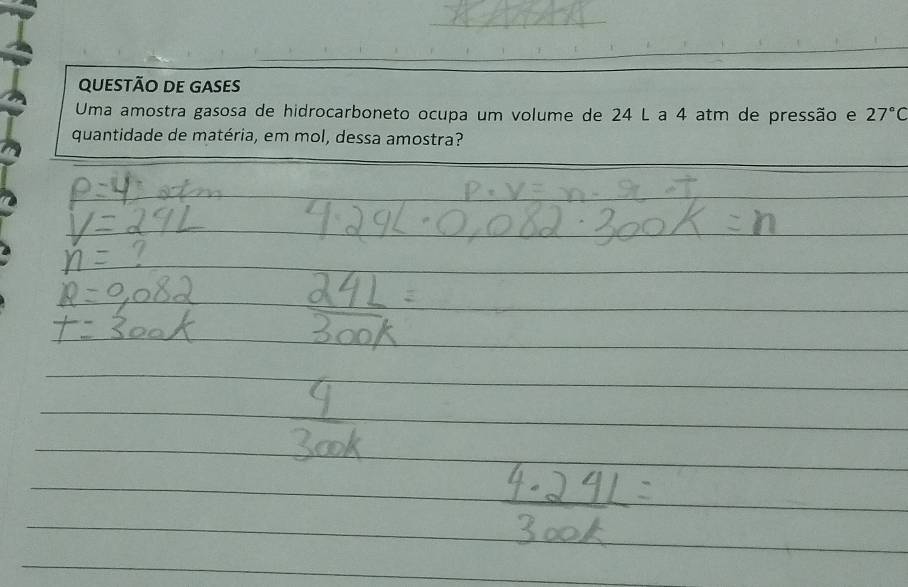 QUESTÃO DE GASES
Uma amostra gasosa de hidrocarboneto ocupa um volume de 24 L a 4 atm de pressão e 27°C
quantidade de matéria, em mol, dessa amostra?
P=4 atm
P.V=n.R.T
V=24L
4.24L.0,082.300K=n
n=?
R=0,082
24L=
T=300K
300K
4
300K
4.24L=
300K